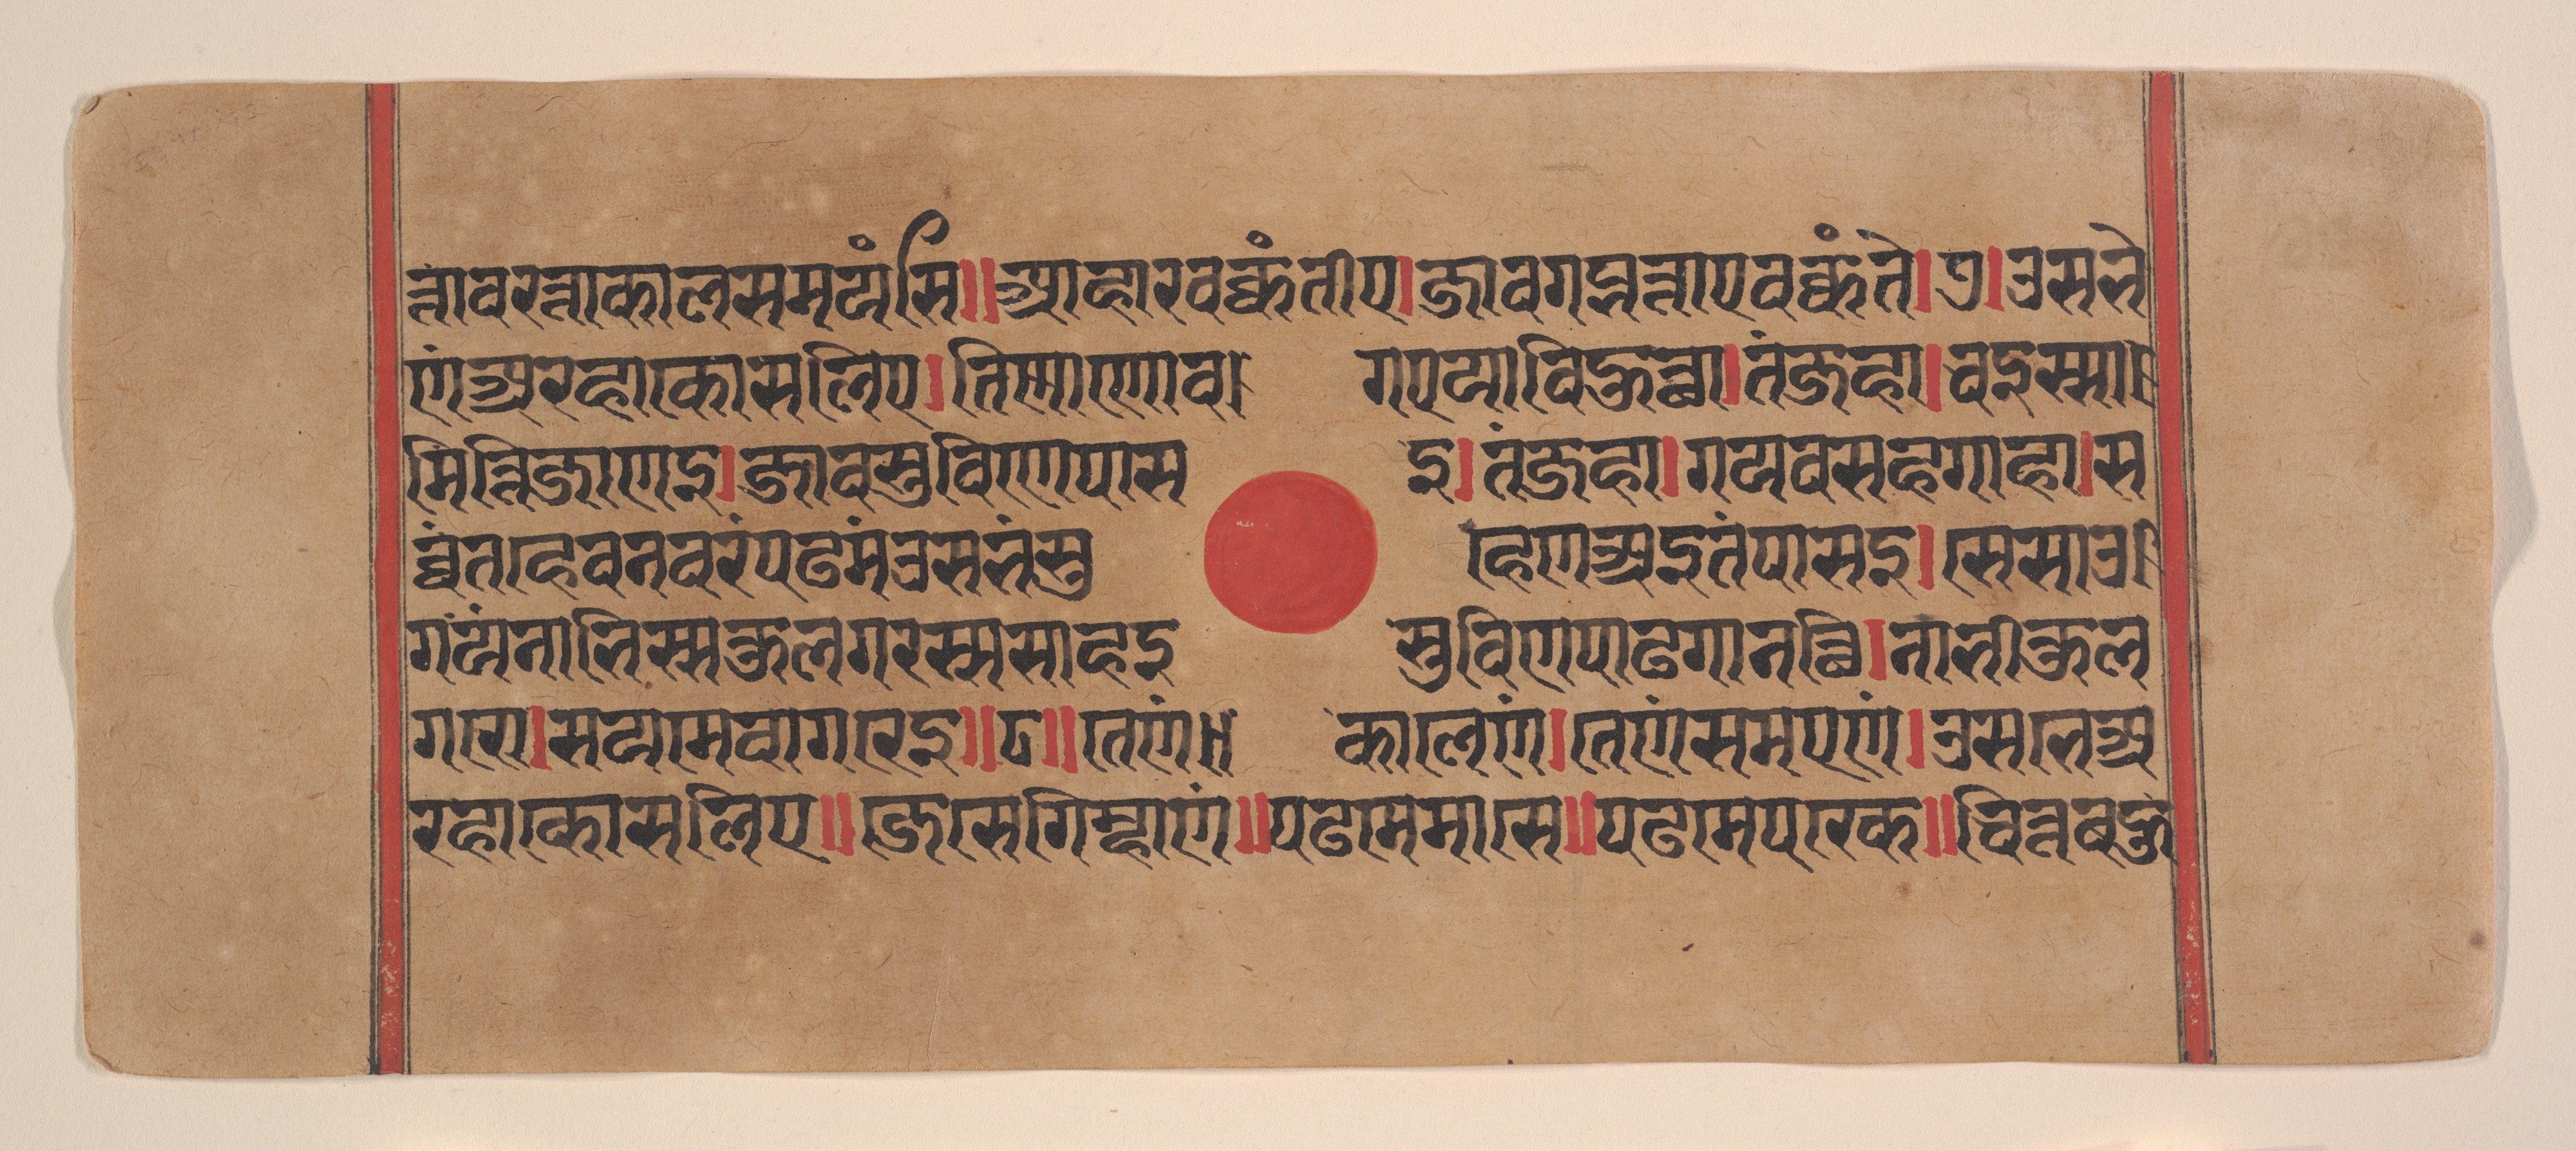 त्तावरत्ताकालसमयंसि॥आहारवक्कंतीए।जावगब्भत्ताएवक्कंते।७।उसभे
णंअरहाकोसलिए।तिण्णाणोव। गएयाविहुत्था।तंजहा।चइस्सा।
मित्तिजाणइ।जावसुविणेपास इ।तंजहा।गयवसहगाहा।स
व्वंतहेवनवरंपढमंउसभंमु हेणअइतंपासइ।सेसाउ।
गयंनाभिस्सकुलगरस्ससाहइ सुविणपाढगानत्थि।नाभीकुल
गरो।सयमेववागरेइ॥८॥तेणं॥ कालेणं।तेणंसमएणं।उसभेअ
रहाकोसलिए॥जेसेगिम्हाणं॥पढमेमासे॥पढमेपरके॥चित्तबहु